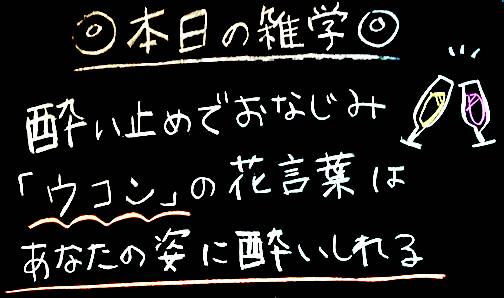 ◎本日の雑学◎
酔い止めでおなじみ
「ウコン」の花言葉は
あなたの姿に酔いしれる